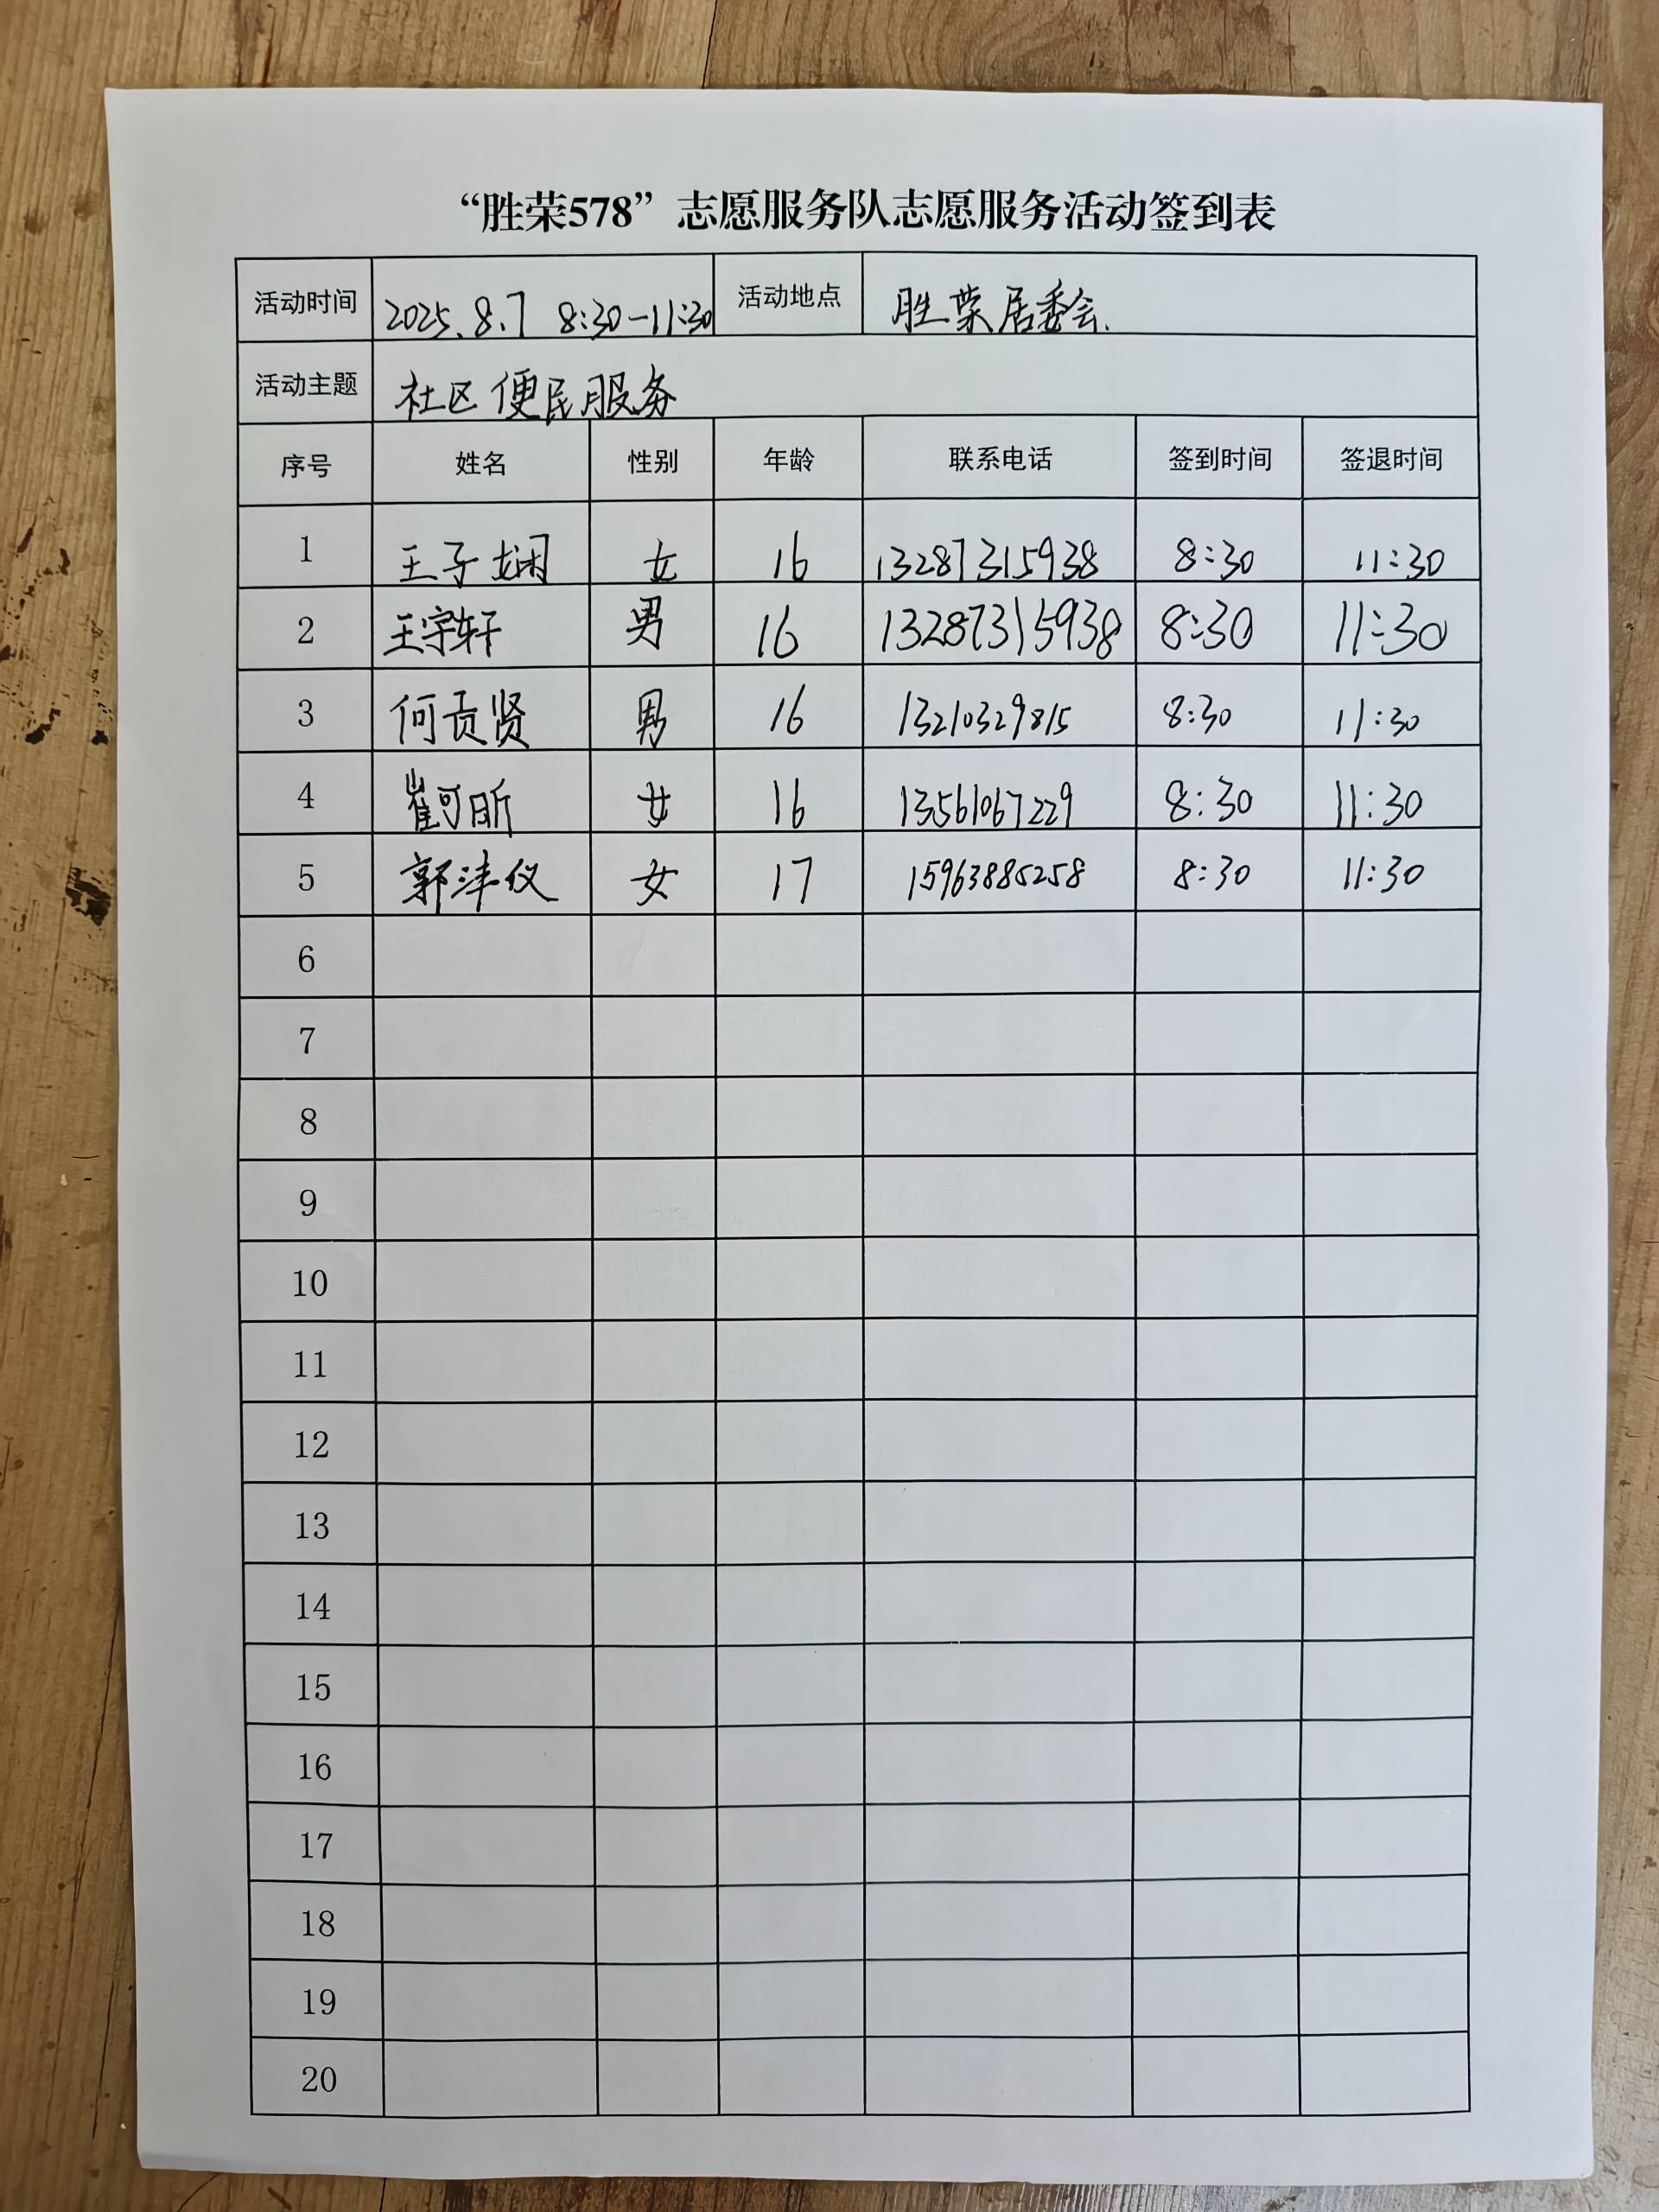 “胜荣578”志愿服务队志愿服务活动签到表
活动时间 2025.8.7 8:30-11:30 活动地点 胜荣居委会.
活动主题 社区便民服务
序号 姓名 性别 年龄 联系电话 签到时间 签退时间
1 王子娴 女 16 13287315938 8:30 11:30
2 王宇轩 男 16 13287315938 8:30 11:30
3 何贡贤 男 16 13210329815 8:30 11:30
4 崔可昕 女 16 13561067229 8:30 11:30
5 郭沣仪 女 17 15963885258 8:30 11:30
6
7
8
9
10
11
12
13
14
15
16
17
18
19
20